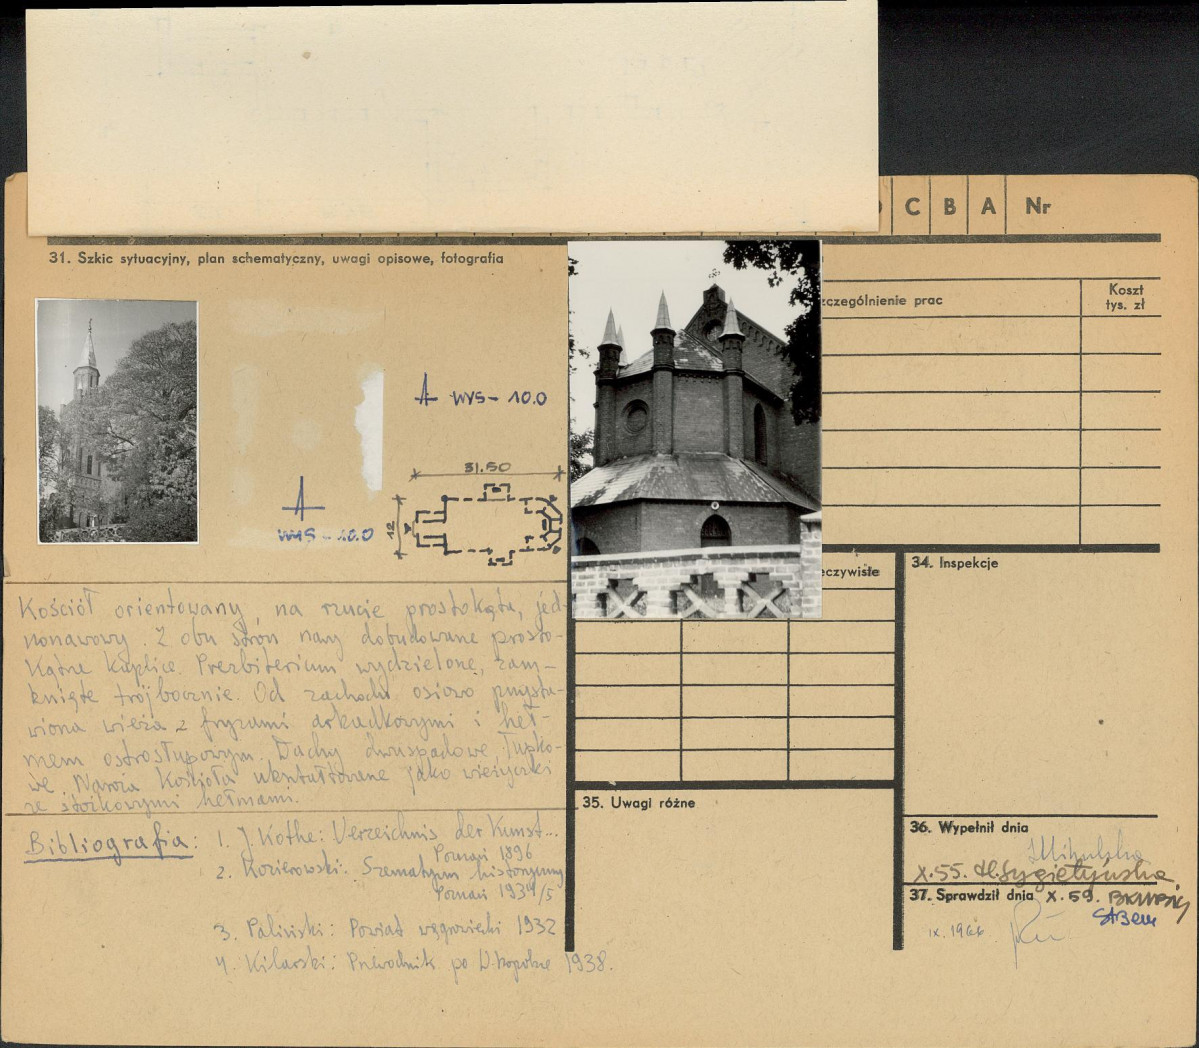 C B A Nr
31. Szkic sytuacyjny, plan schematyczny, uwagi opisowe, fotografia
zczególnienie prac
Koszt
tys. zł
WYS - 10.0
31.50
12
WYS - 10.0
eczywiste
34. Inspekcje
Kościół orientowany na rzucie prostokąta, jed-
nonawowy. Z obu stron nawy dobudowane prosto-
kątne kaplice. Prezbiterium wydzielone, zam-
knięte trójbocznie. Od zachodu osiowo przysta-
wiona wieża z fryzami arkadkowymi i heł-
mem ostrosłupowym. Dachy dwuspadowe, łupko-
we. Naroża kościoła ukształtowane jako wieżyczki
ze stożkowymi hełmami.
35. Uwagi różne
Bibliografia: 1. J. Kothe: Verzeichnis der Kunst...
Poznań 1896
2. Kozierowski: Szematyzm historyczny
Poznań 1934/5
3. Paliński: Powiat wągrowiecki 1932
4. Kilarski: Przewodnik po Wkopolsce 1938.
36. Wypełnił dnia
X.55. H. Sygietyńska
37. Sprawdził dnia X.59.
IX.1966